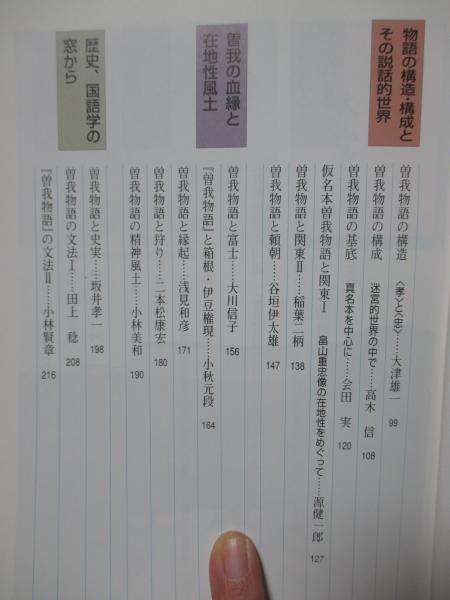 物語の構造・構成と
その説話的世界
曽我物語の構造 〈孝〉と〈忠〉……大津雄一 99
曽我物語の構成 迷宮的世界の中で……高木 信 108
曽我物語の基底 真名本を中心に……会田 実 120
仮名本曽我物語と関東Ⅰ 畠山重忠像の在地性をめぐって……源健一郎 127
曽我物語と関東Ⅱ……稲葉二柄 138
曽我物語と頼朝……谷垣伊太雄 147
曽我の血縁と
在地性風土
曽我物語と富士……大川信子 156
『曽我物語』と箱根・伊豆権現……小秋元段 164
曽我物語と縁起……浅見和彦 171
曽我物語と狩り……二本松康宏 180
曽我物語の精神風土……小林美和 190
歴史、国語学の
窓から
曽我物語と史実……坂井孝一 198
曽我物語の文法Ⅰ……田上 稔 208
『曽我物語』の文法Ⅱ……小林賢章 216